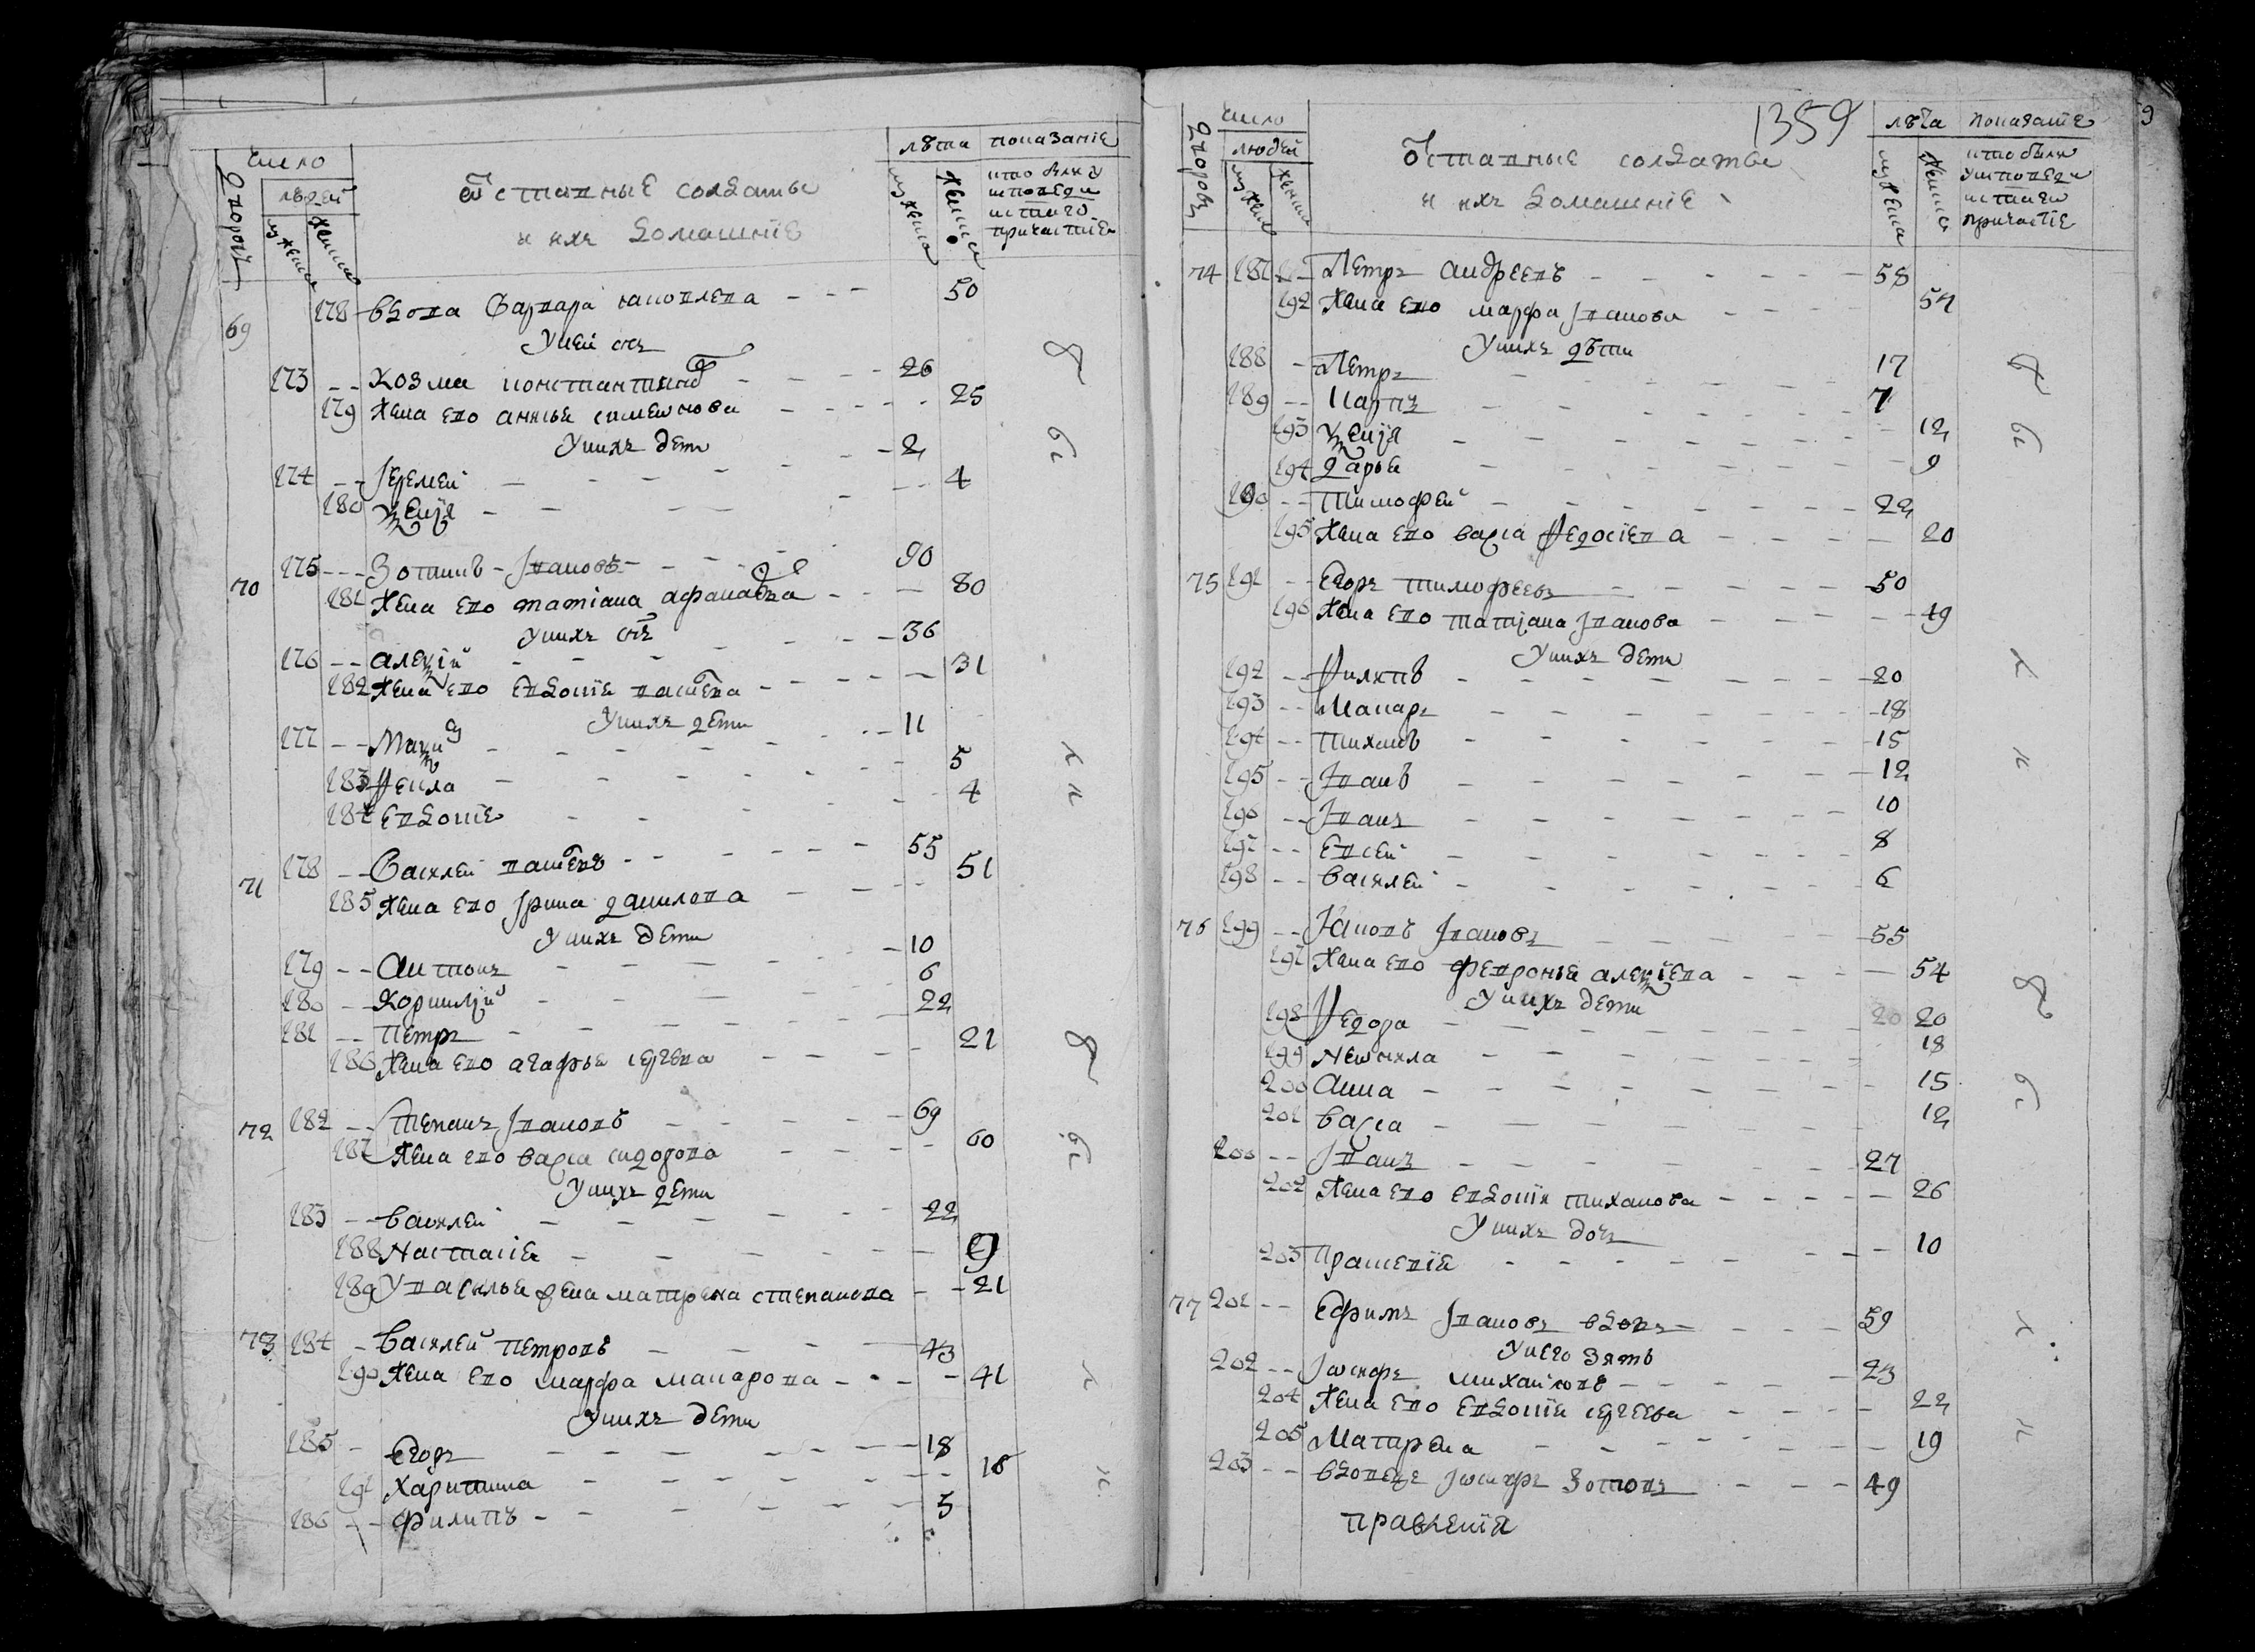 число
лѣта показанiе
дворовъ
людей
Ѿставные солдаты
и ихъ домашнiе
мужеска
женска
кто былъ у
исповеди
и стаго
причастiе
69 178 вдова Варвара яковлева 50
у ней снъ
173 Козма константиновъ 26
179 жена ево анисья симеѡнова 25
у нихъ дети
174 Iеремей 2
180 Ѯенiя 4
70 175 Зотикъ Iвановъ 90
181 жена ево татiана афанасева 80
у нихъ снъ
176 алеѯiй 36
182 жена ево евдокiя 31
у нихъ дети
177 Маѯим 11
183 Ѳекла 5
184 Евдокiе 4
71 178 Василей 55
185 жена ево Iрина данилова 51
у нихъ дети
179 Антонъ 10
180 Корнилiй 6
181 Петръ 22
186 жена ево агафья сергева 21
72 182 Степанъ Iвановъ 69
187 жена ево варѣа сидорова 60
у нихъ дети
183 василей 22
188 Настасiя 9
189 У василья жена матрена степанова 21
73 184 Василей петровъ 43
190 жена ево марфа макарова 41
у нихъ дети
185 Егоръ 18
191 Харитина 18
186 филипъ 5
1359
число
лѣта показанiе
дворовъ
людей
Ѿставные солдаты
и ихъ домашнiе
мужеска
женска
кто были
у исповеди
и стаго
причастiе
74 187 Петръ андреевъ 58
192 жена ево марфа Iванова 54
у нихъ дѣти
188 Петръ 17
189 Карпъ 7
193 Ѯенiя 12
194 дарья 9
190 Тимофей 22
195 жена ево Ѳедосiева 20
75 191 Егоръ тимофеевъ 50
196 жена ево татiана Iванова 49
у нихъ дети
192 Ѳилипъ 20
193 Макаръ 18
194 Тихонъ 15
195 Iванъ 12
196 Iванъ 10
197 Евсей 8
198 василей 6
76 199 Iаковъ Iвановъ 55
197 жена ево февронья алеѯiева 54
у нихъ дети
198 Ѳедора 20
199 Неѡнила 18
200 Анна 15
201 12
200 Iванъ 27
202 жена ево евдокiя тиханова 26
у нихъ дочь
203 Прасковiя 10
77 201 Ефимъ Iвановъ вдовъ 59
у него зять
202 Iѡсифъ михайловъ 23
204 жена ево евдокiя сергеева 22
205 Матрена 19
203 вдовецъ Iѡсифъ Зотовъ 49
правленiя